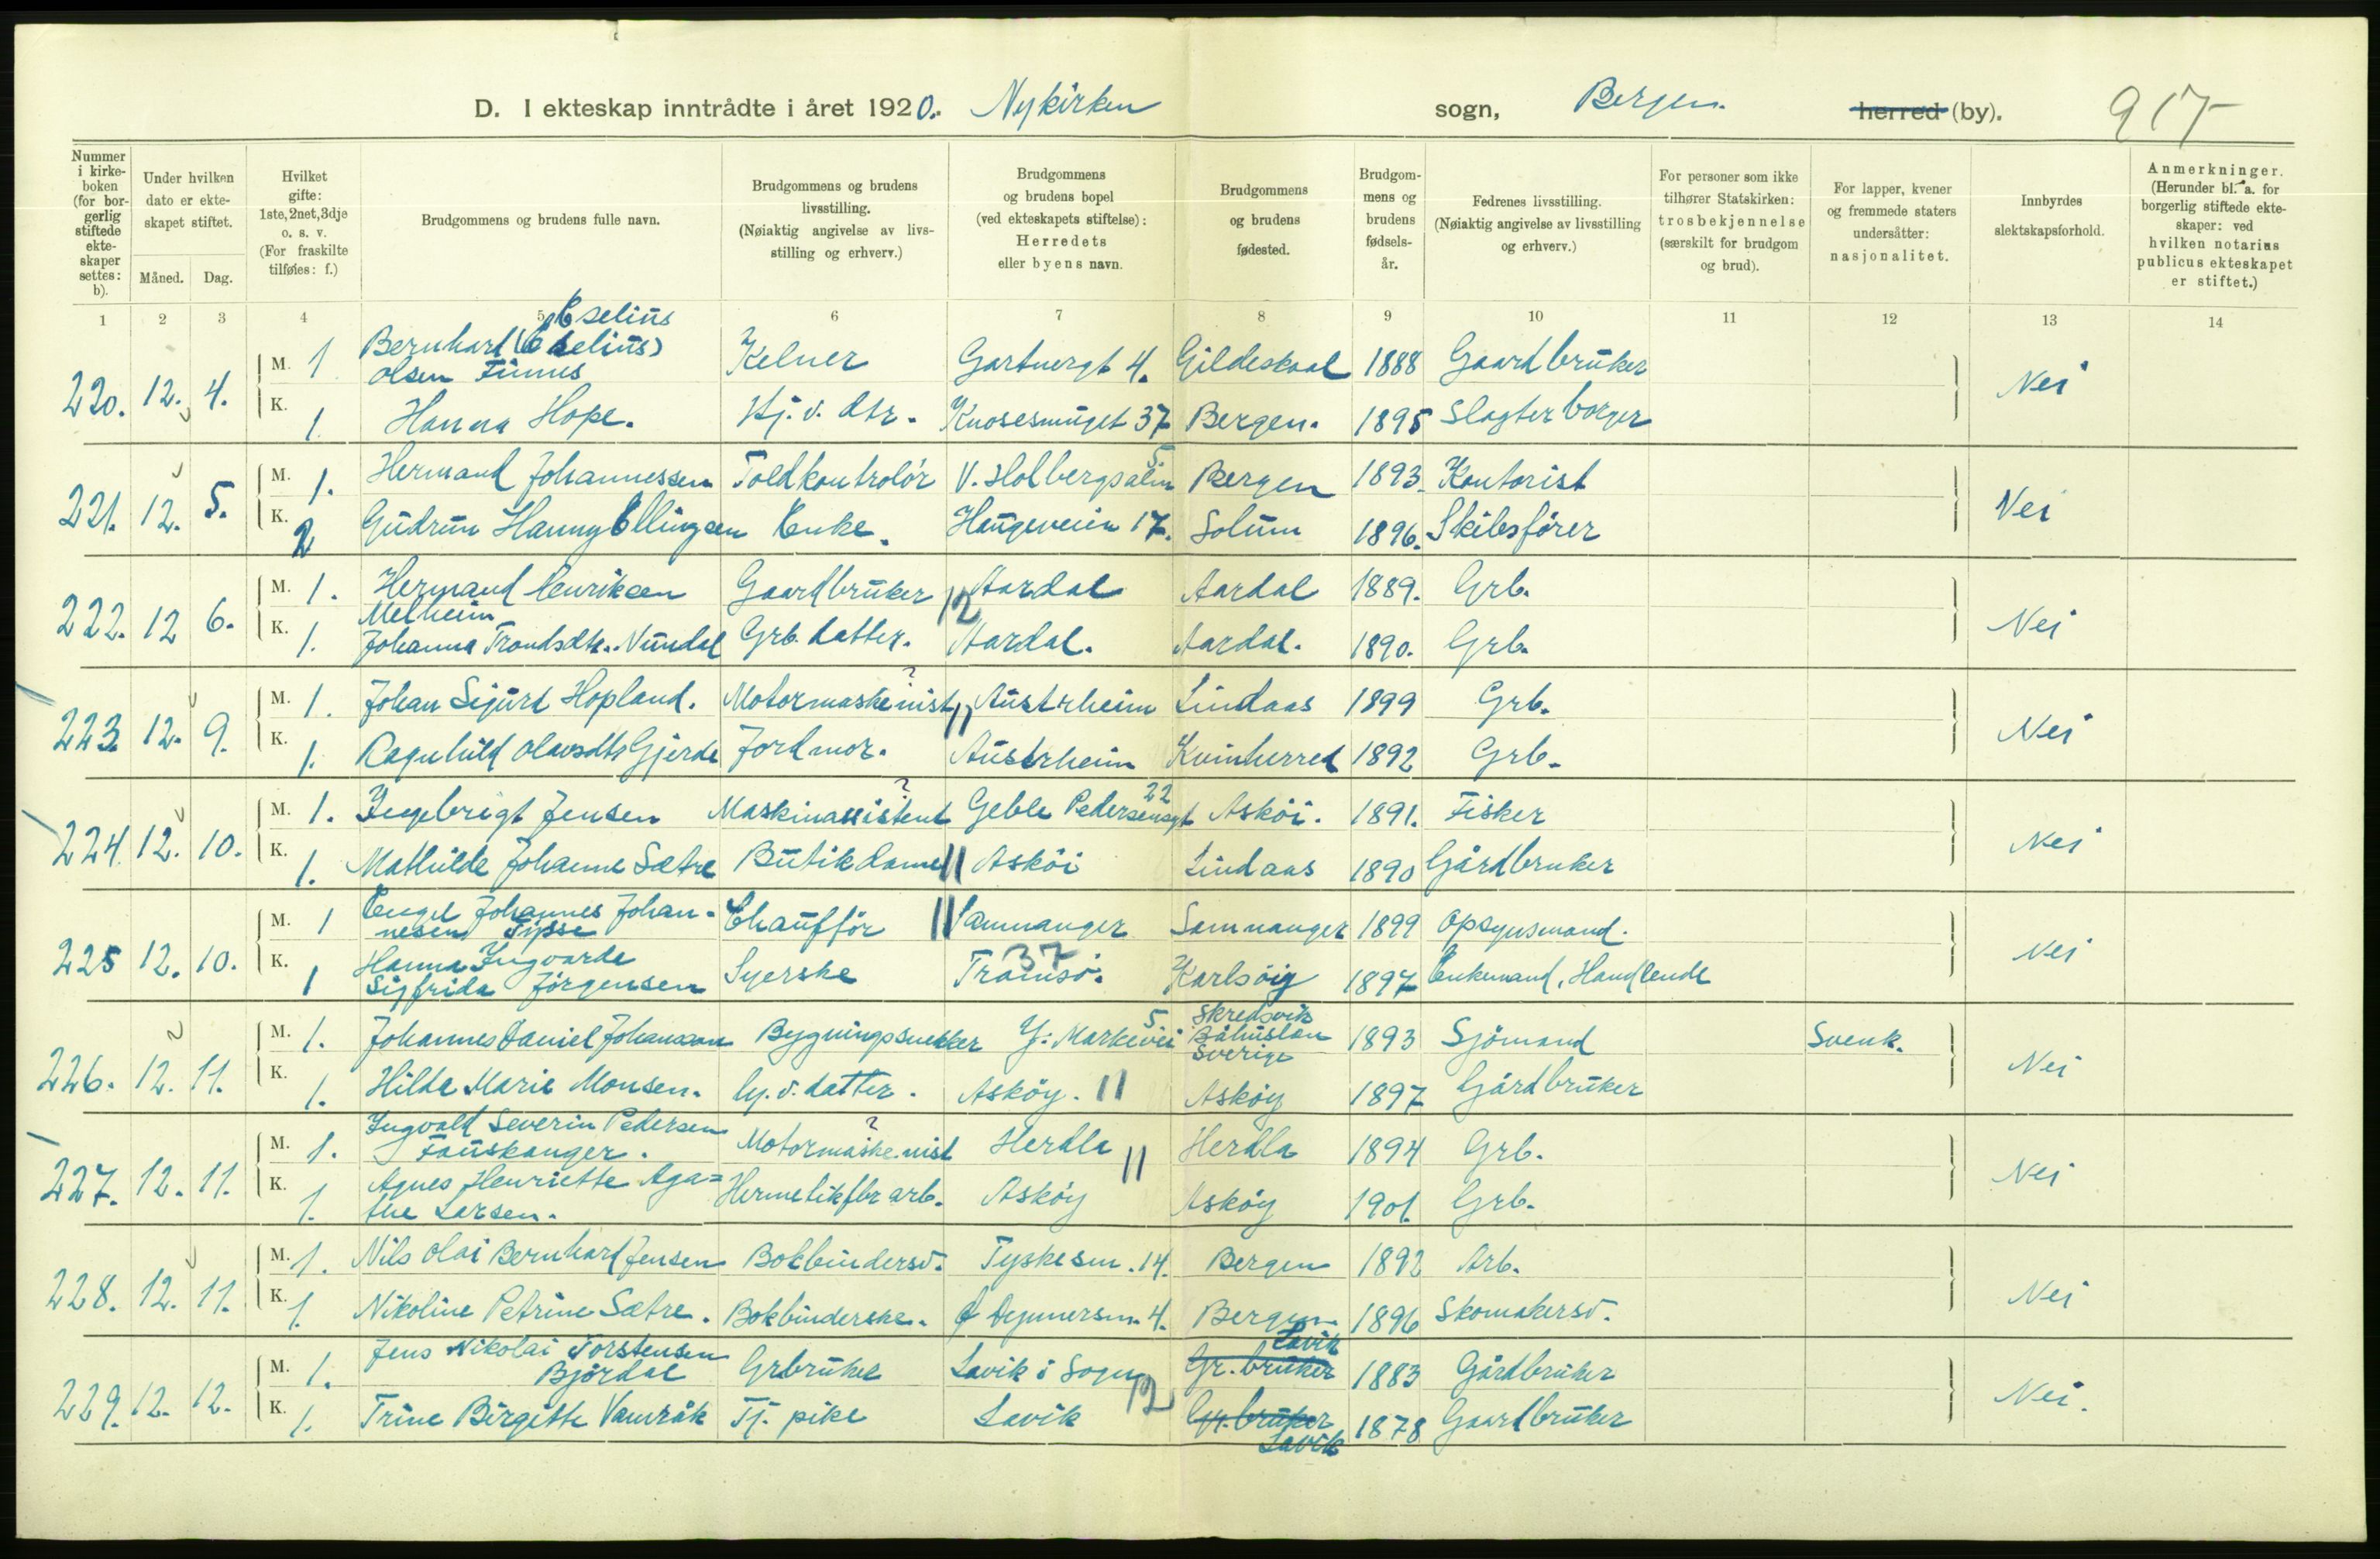 D. I ekteskap inntrådte i året 1920. Nykirken sogn, Bergen. herred (by). 917
Nummer i kirkeboken (for borgerlig stiftede ekteskaper settes: b).
Under hvilken dato er ekteskapet stiftet.
Måned. Dag.
Hvilket gifte: 1ste, 2net, 3dje o. s. v. (For fraskilte tilføies: f.)
Brudgommens og brudens fulle navn.
Brudgommens og brudens livsstilling. (Nøiaktig angivelse av livsstilling og erhverv.)
Brudgommens og brudens bopel (ved ekteskapets stiftelse): Herredets eller byens navn.
Brudgommens og brudens fødested.
Brudgommens og brudens fødselsår.
Fedrenes livsstilling. (Nøiaktig angivelse av livsstilling og erhverv.)
For personer som ikke tilhører Statskirken: trosbekjennelse (særskilt for brudgom og brud).
For lapper, kvener og fremmede staters undersåtter: nasjonalitet.
Innbyrdes slektskapsforhold.
Anmerkninger. (Herunder bl. a. for borgerlig stiftede ekteskaper: ved hvilken notarius publicus ekteskapet er stiftet.)
1 2 3 4 5 6 7 8 9 10 11 12 13 14
Eselius
220. 12. 4. M. 1 Bernhard (Eselius) Olsen Finnes Kelner Gartnergt 4. Gildeskaal 1888 Gaardbruker Nei
K. 1. Hanna Hope. Hj. v. dtr. Knosesmuget 37 Bergen. 1895 Slagterborger
221. 12. 5. M. 1. Hermand Johannessen Toldkontrolör V. Holbergsalm 5 Bergen 1893. Kontorist Nei
K. 2 Gudrun Hanny Ellingsen Enke. Haugeveien 17. Solum 1896. Skibsförer
222. 12 6. M. 1. Hermand Henriksen Melheim Gaardbruker 12 Aardal Aardal 1889. Grb. Nei
K. 1. Johanna Trondsdtr. Nundal Grb. datter. Aardal. Aardal. 1890. Grb.
223. 12. 9. M. 1. Johan Sigurd Hopland. Motormaskinist ? 11 Austrheim Lindaas 1899 Grb. Nei
K. 1. Ragnhild Olavsdtr Gjerde Jordmor. Austrheim Kvinherred 1892 Grb.
224. 12. 10. M. 1. Ingebrigt Jensen Maskinassistent ? Geble Pedersensgt 22 Asköi. 1891. Fisker Nei
K. 1. Mathilde Johanne Sætre Butikdame 11 Asköi Lindaas 1890 Gårdbruker
225 12. 10. M. 1 Engel Johannes Johannesen Tysse Chaufför 11 Samnanger Samnanger 1899 Opsynsmand. Nei
K. 1 Hanna Ingvarda Sigfrida Jörgensen Syerske Tromsö. 37 Karlsöiy 1897 Enkemand, Handlende
226. 12. 11. M. 1. Johannes Daniel Johansson Bygningssnekker Y: Markevei 5 Skredsvik Båhuslän Sverige 1893 Sjömand Svensk. Nei
K. 1. Hilda Marie Monsen. Hj. v. datter. Asköy. 11 Asköy 1897 Gårdbruker
227. 12. 11. M. 1. Ingvald Severin Pedersen Fauskanger. Motormaskinist ? Herdla 11 Herdla 1894 Grb. Nei
K. 1. Agnes Henriette Agathe Larsen. Hermetikfbr arb. Asköy Asköy 1901. Grb.
228. 12. 11. M. 1. Nils Olai Bernhard Jensen Bokbindersv. Tyskesm. 14. Bergen 1892 Arb. Nei
K. 1. Nikoline Petrine Sætre. Bokbinderske. Dynnersm. 4. Bergen 1896 Skomakersv.
229. 12. 12. M. 1. Jens Nikolai Torstensen Björdal Grbruker Lavik i Sogn 12 Gr. bruker Lavik 1883 Gårdbruker Nei.
K. 1. Trine Birgitte Vamråk Tj. pike Lavik Gr. bruker Lavik 1878 Gaardbruker